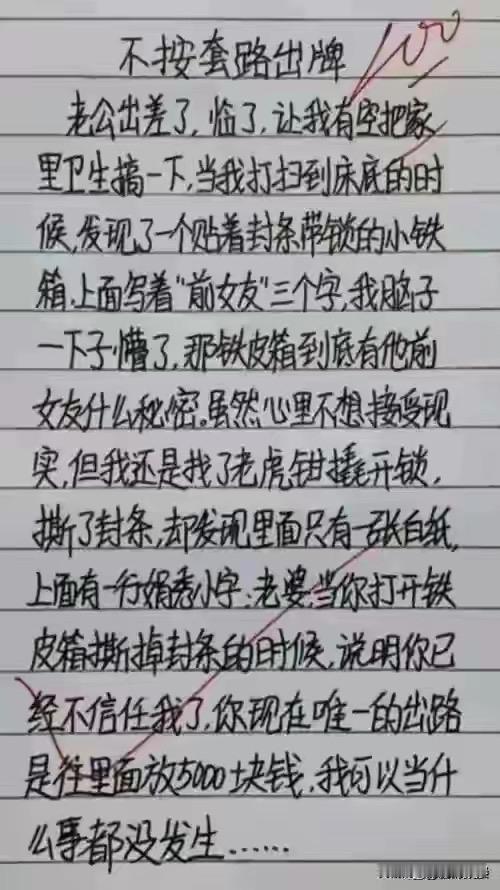 100
不按套路出牌
老公出差了,临了,让我有空把家
里卫生搞一下,当我打扫到床底的时
候,发现了一个贴着封条带锁的小铁
箱.上面写着"前女友"三个字,我脑子
一下子懵了,那铁皮箱到底有他前
女友什么秘密。虽然心里不想接受现
实,但我还是找了老虎钳撬开锁,
撕了封条,却发现里面只有一张白纸,
上面有一行娟秀小字:老婆,当你打开铁
皮箱撕掉封条的时候,说明你已
经不信任我了,你现在唯一的出路
是往里面放5000块钱,我可以当什
么事都没发生……